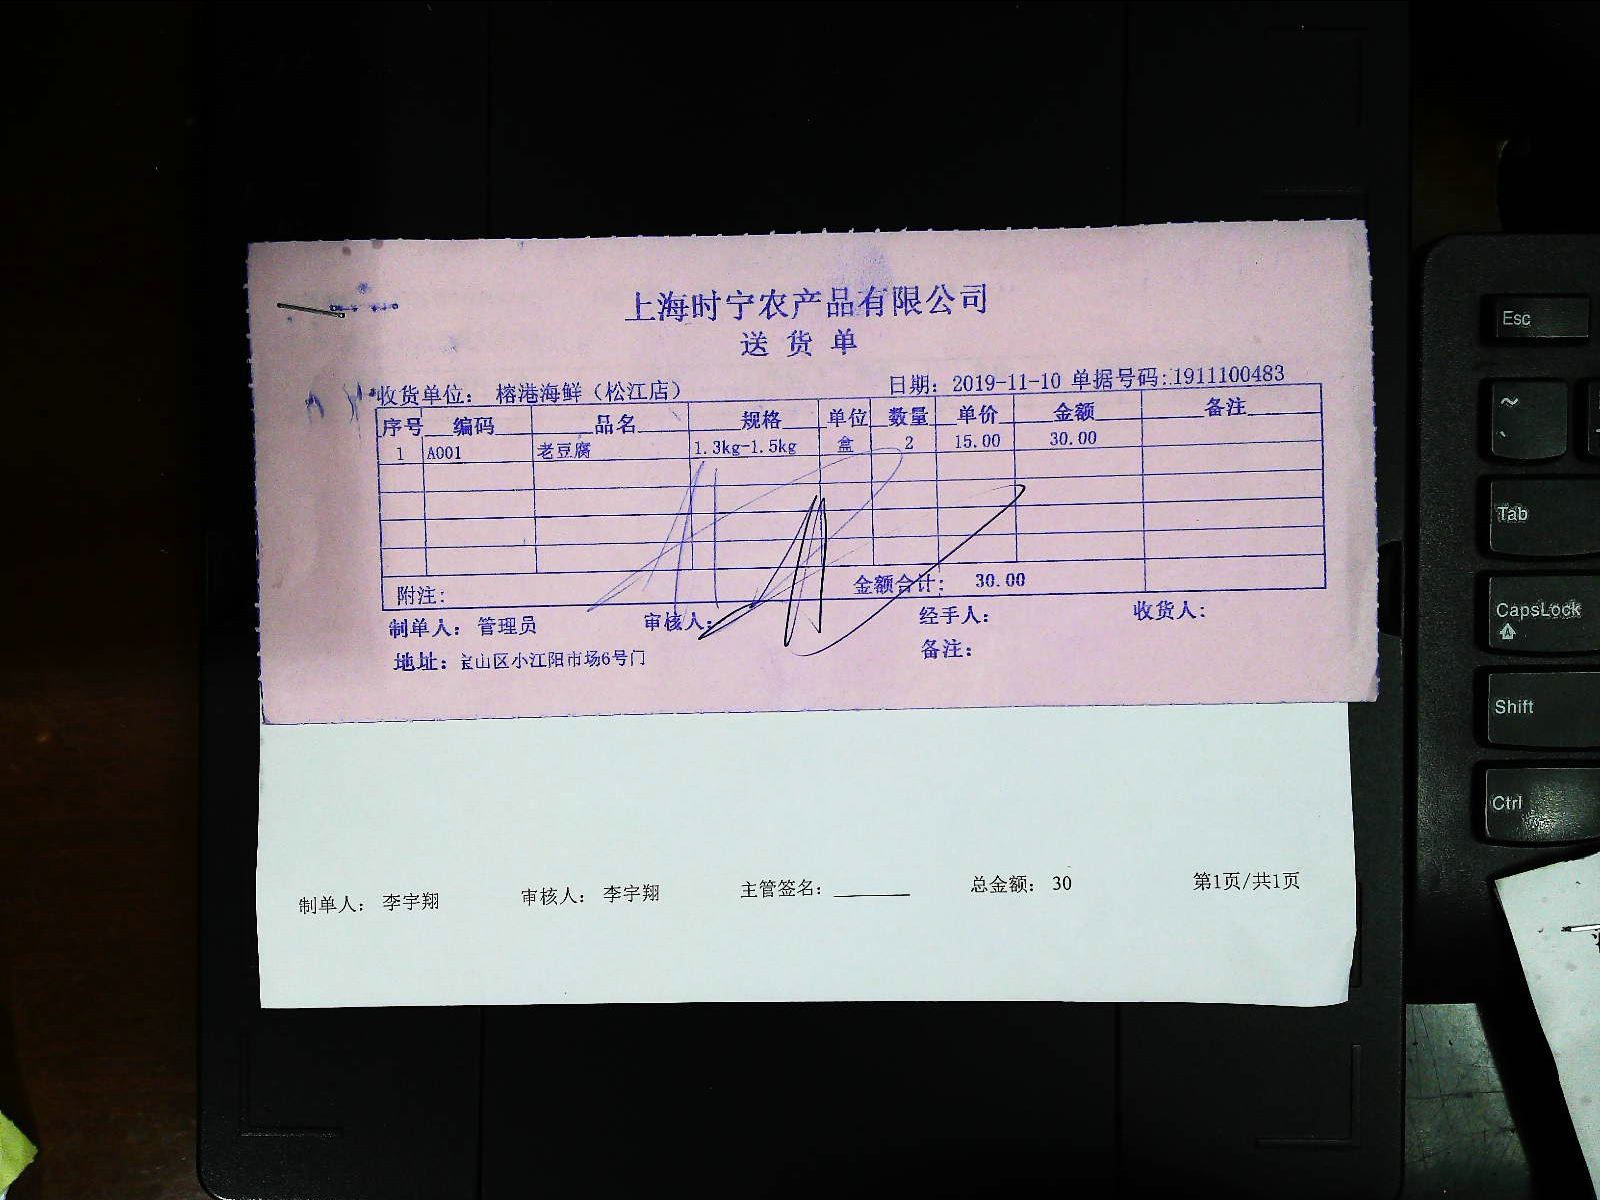 上海时宁农产品有限公司
送货单
收货单位： 榕港海鲜（松江店） 日期： 2019-11-10 单据号码：1911100483
序号 编码 品名 规格 单位 数量 单价 金额 备注
1 A001 老豆腐 1.3kg-1.5kg 盒 2 15.00 30.00
附注： 金额合计： 30.00
制单人： 管理员 审核人： 经手人： 收货人：
地址： 宝山区小江阳市场6号门 备注：
制单人： 李宇翔 审核人： 李宇翔 主管签名： 总金额： 30 第1页/共1页
Esc
~
Tab
CapsLock
A
Shift
Ctrl